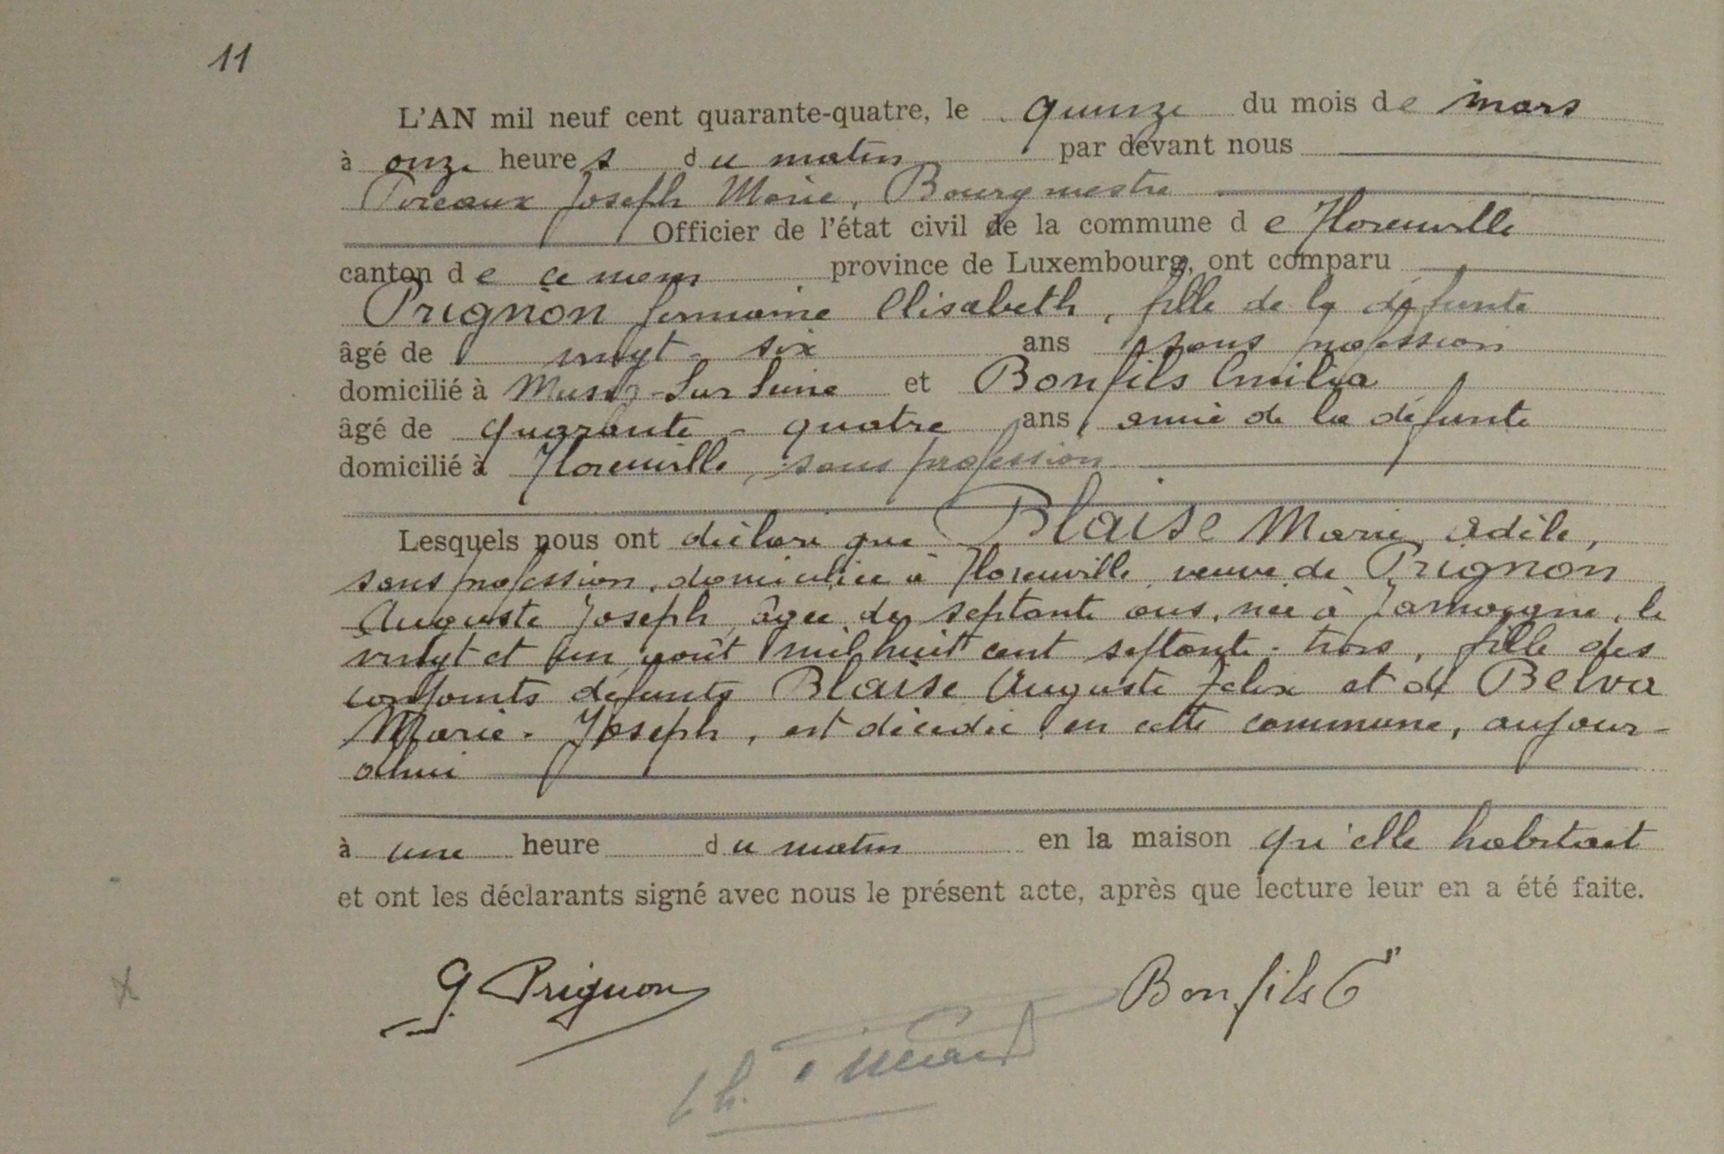 11
L'AN mil neuf cent quarante-quatre, le quinze du mois de mars
à onze heures du matin par devant nous
Pireaux Joseph Marie, Bourgmestre
Officier de l'état civil de la commune de Florenville
canton de ce nom province de Luxembourg, ont comparu
Prignon Germaine Elisabeth, fille de la défunte
âgé de vingt-six ans, sans profession
domicilié à Mussy-Sur Seine et Bonfils Emilia
âgé de quarante-quatre ans, amie de la défunte
domicilié à Florenville, sans profession
Lesquels nous ont déclaré que Blaise Marie Adèle,
sans profession, domiciliée à Florenville, veuve de Prignon
Auguste Joseph, âgée de septante ans, née à Jamoigne, le
vingt et un août mil huit cent septante-trois, fille des
conjoints défunts Blaise Auguste Felix et de Belva
Marie-Joseph, est décédée en cette commune, aujour-
dhui
à une heure du matin en la maison qu'elle habitait
et ont les déclarants signé avec nous le présent acte, après que lecture leur en a été faite.
G Prignon Bonfils E